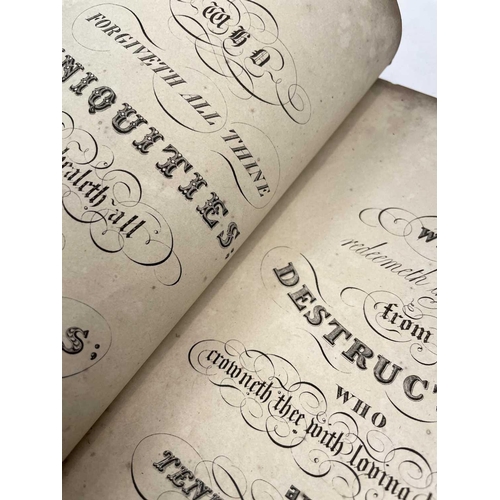 WHO
FORGIVETH ALL THINE
NIQUITIES:
healeth all
S;
W
redeemeth
from
DESTRUCT
WHO
crowneth thee with loving
TEN